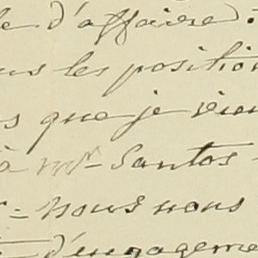 le d'affaire) :
ns les position
s que je vien
à Mr Santos -
- nous nous
d'engageme